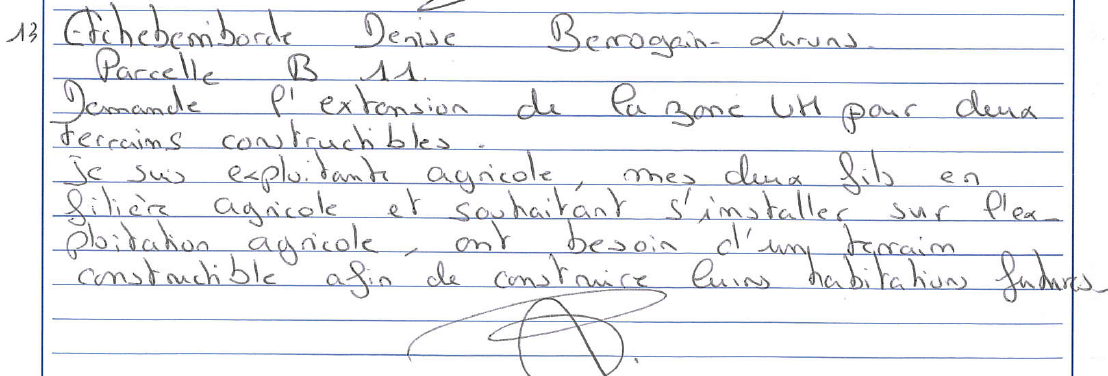 13 Etchebemborde Denise Berrogain-Laruns.
Parcelle B 11.
Demande l'extension de la zone UH pour deux
terrains constructibles.
je suis exploitante agricole, mes deux fils en
filière agricole et souhaitant s'installer sur l'ex-
ploitation agricole, ont besoin d'un terrain
constructible afin de construire leurs habitations futures